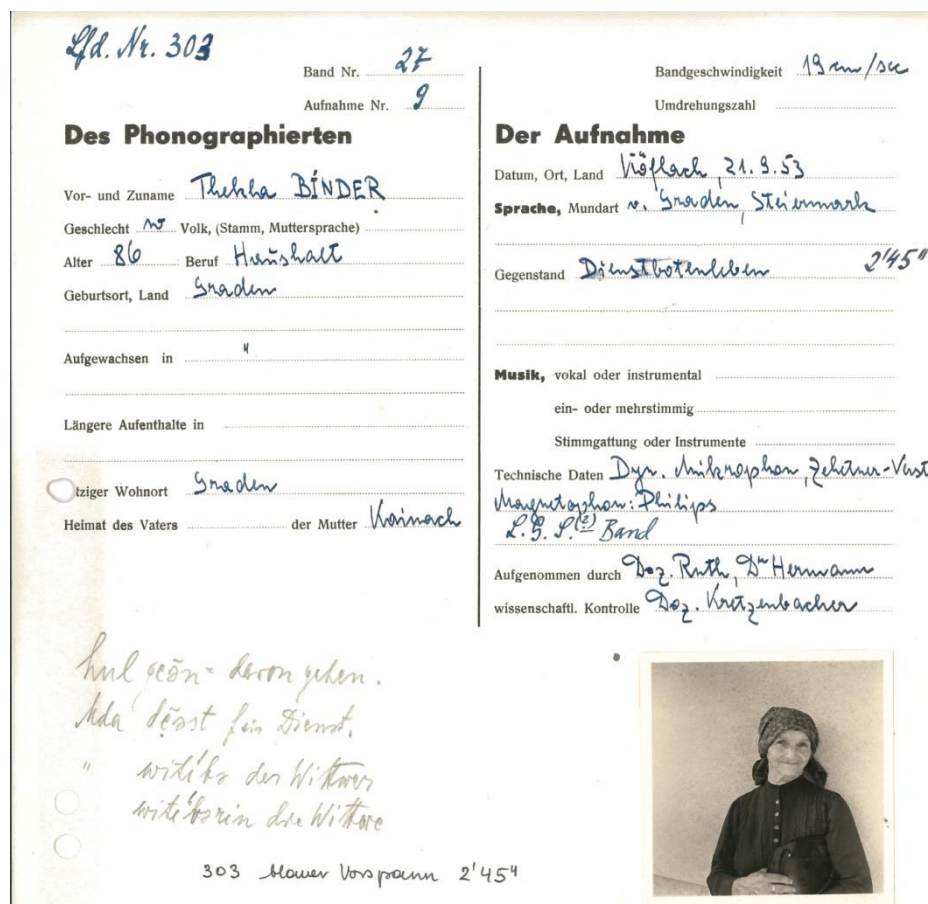 Lfd. Nr. 303
Band Nr. 27
Aufnahme Nr. 9
Des Phonographierten
Vor- und Zuname Thekla BINDER
Geschlecht w Volk, (Stamm, Muttersprache)
Alter 86 Beruf Haushalt
Geburtsort, Land Graden
Aufgewachsen in "
Längere Aufenthalte in
tziger Wohnort Graden
Heimat des Vaters der Mutter Kainach
Bandgeschwindigkeit 19 cm/sec
Umdrehungszahl
Der Aufnahme
Datum, Ort, Land Köflach, 21.9.53
Sprache, Mundart v. Graden, Steiermark
Gegenstand Dienstbotenleben 2'45"
Musik, vokal oder instrumental
ein- oder mehrstimmig
Stimmgattung oder Instrumente
Technische Daten Dyn. Mikrophon, Zehetner-Verst
Magnetophon: Philips
L.G.S. (?) Band
Aufgenommen durch Doz. Ruth, Dr Hermann
wissenschaftl. Kontrolle Doz. Kretzenbacher
davon gehen.
Mda für Dienst.
" der Wittwer
die Wittwe
303 blauer Vorspann 2'45"